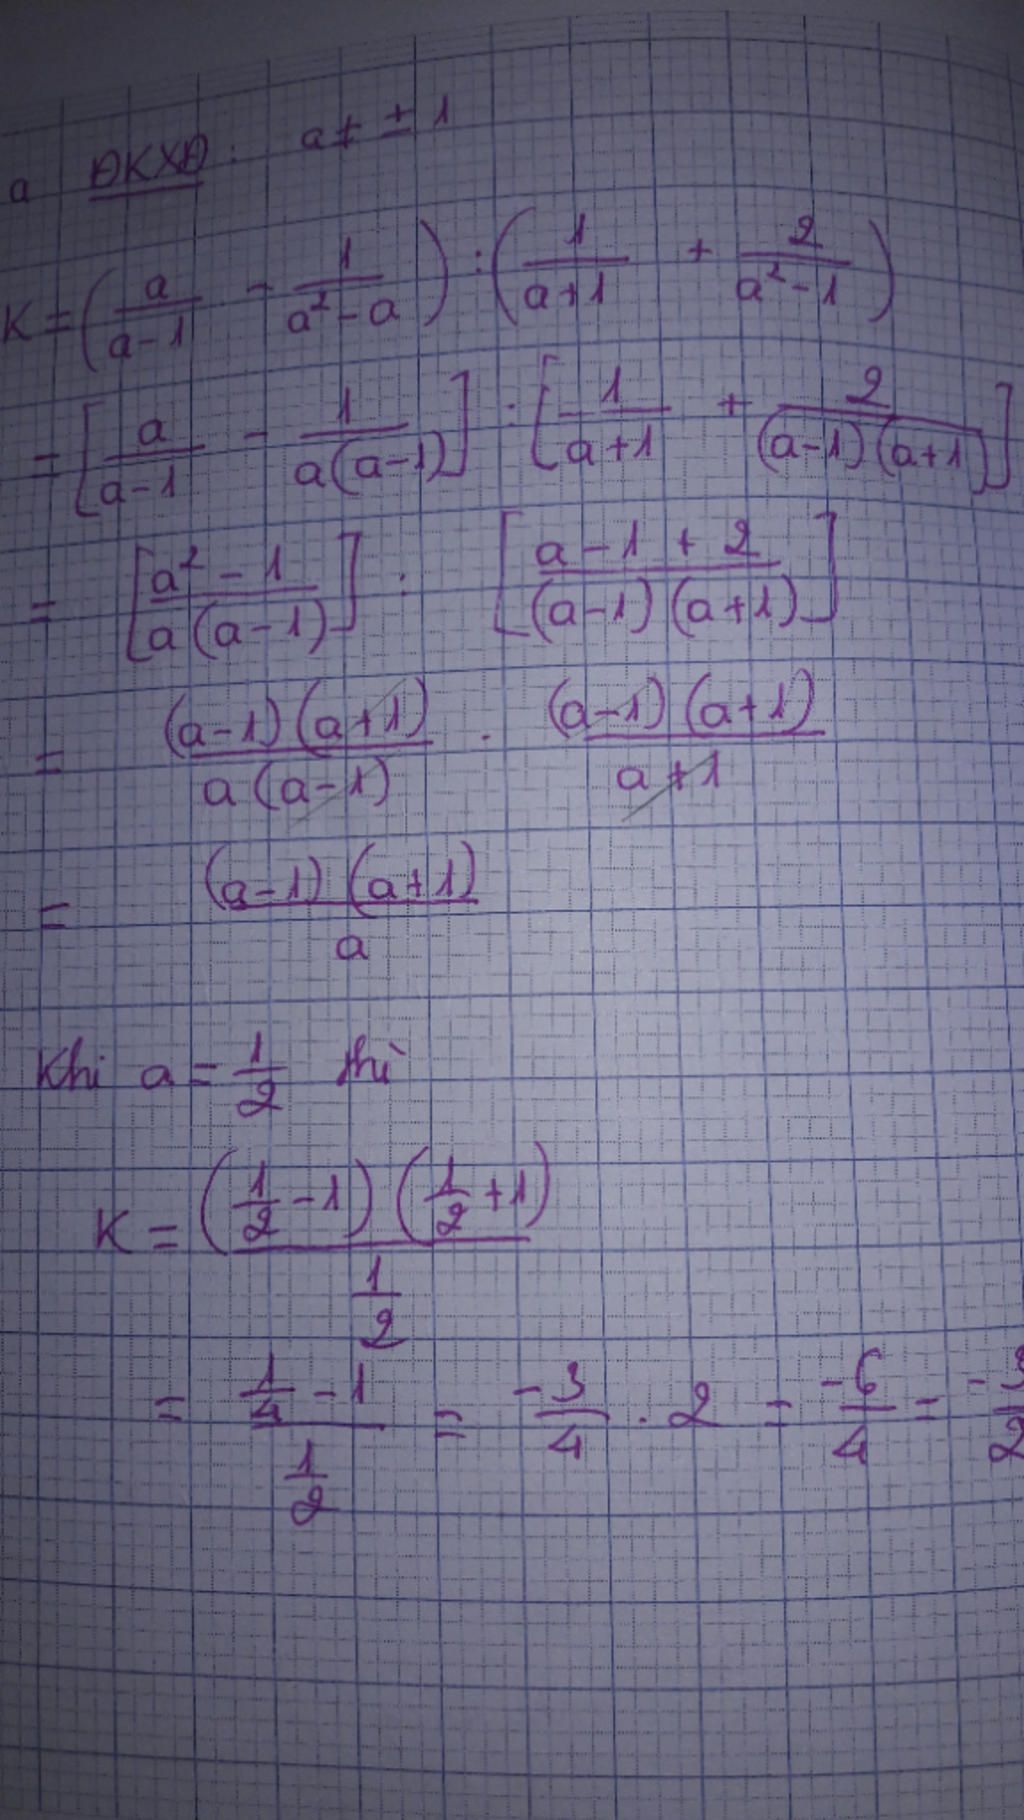 a ĐKXĐ: a ≠ ± 1
K = (a/(a-1) - 1/(a²-a)) : (1/(a+1) + 2/(a²-1))
= [a/(a-1) - 1/(a(a-1))] : [1/(a+1) + 2/((a-1)(a+1))]
= [(a²-1)/(a(a-1))] : [(a-1+2)/((a-1)(a+1))]
= (a-1)(a+1)/(a(a-1)) . (a-1)(a+1)/(a+1)
= (a-1)(a+1)/a
Khi a = 1/2 thì
K = (1/2 - 1)(1/2 + 1)/(1/2)
= (1/4 - 1)/(1/2) = -3/4 . 2 = -6/4 = -3/2